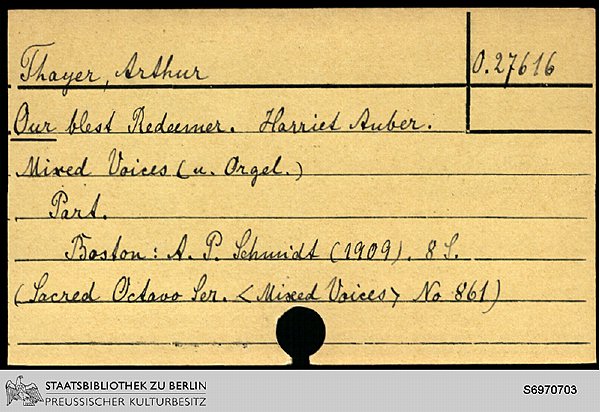 Thayer, Arthur
O. 27616
Our blest Redeemer. Harriet Auber.
Mixed Voices (u. Orgel.)
Part.
Boston: A. P. Schmidt (1909). 8 S.
(Sacred Octavo Ser. <Mixed Voices> No 861)
STAATSBIBLIOTHEK ZU BERLIN
PREUSSISCHER KULTURBESITZ
S6970703